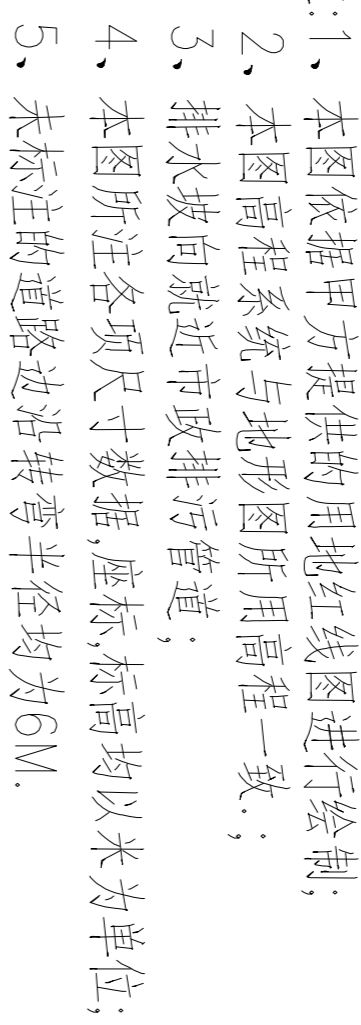 :1、本图依据甲方提供的用地红线图进行绘制;
2、本图高程系统与地形图所用高程一致.;
3、排水坡向就近市政排污管道;
4、本图所注各项尺寸数据,座标,标高均以米为单位;
5、未标注的道路边沿转弯半径均为6M.